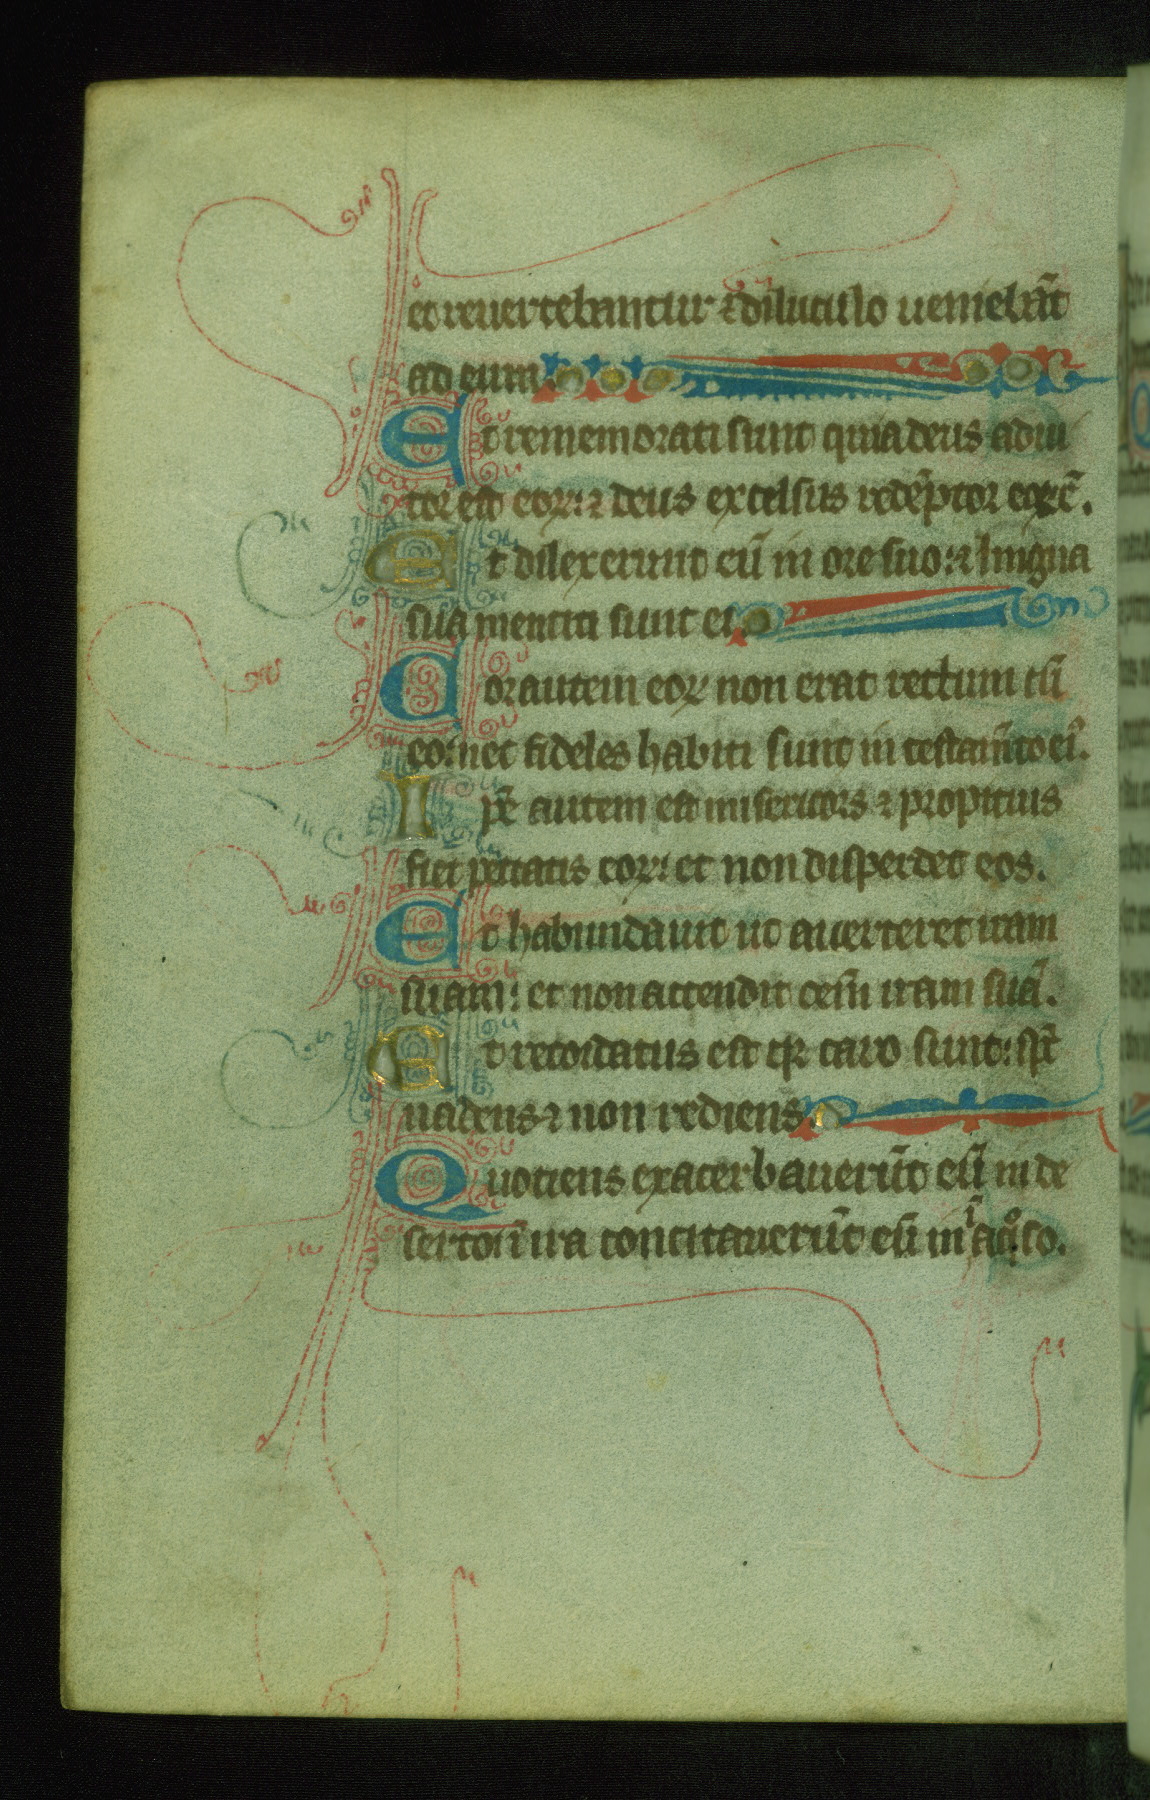 et reuertebantur ⁊ diluculo ueniebãt
ad eum.
Et rememorati sunt quia deus adiu
tor est eoꝝ: ⁊ deus excelsus redẽptor eoꝝ ẽ.
Et dilexerunt eũ in ore suo: ⁊ lingua
sua mentiti sunt ei.
Cor autem eoꝝ non erat rectum cũ
eo: nec fideles habiti sunt in testam̃to eiꝰ.
Ip̃e autem est misericors ⁊ propitius
fiet pctatis eoꝝ: et non disperdet eos.
Et habundauit ut auerteret iram
suam: et non accendit oem̃ iram suã.
Et recordatus est qꝛ caro sunt: sp̃c
uadens ⁊ non rediens.
Quotiens exacerbauerũt eũ in de
serto: ĩ ira concitauerũt eũ in ĩaqͦso.